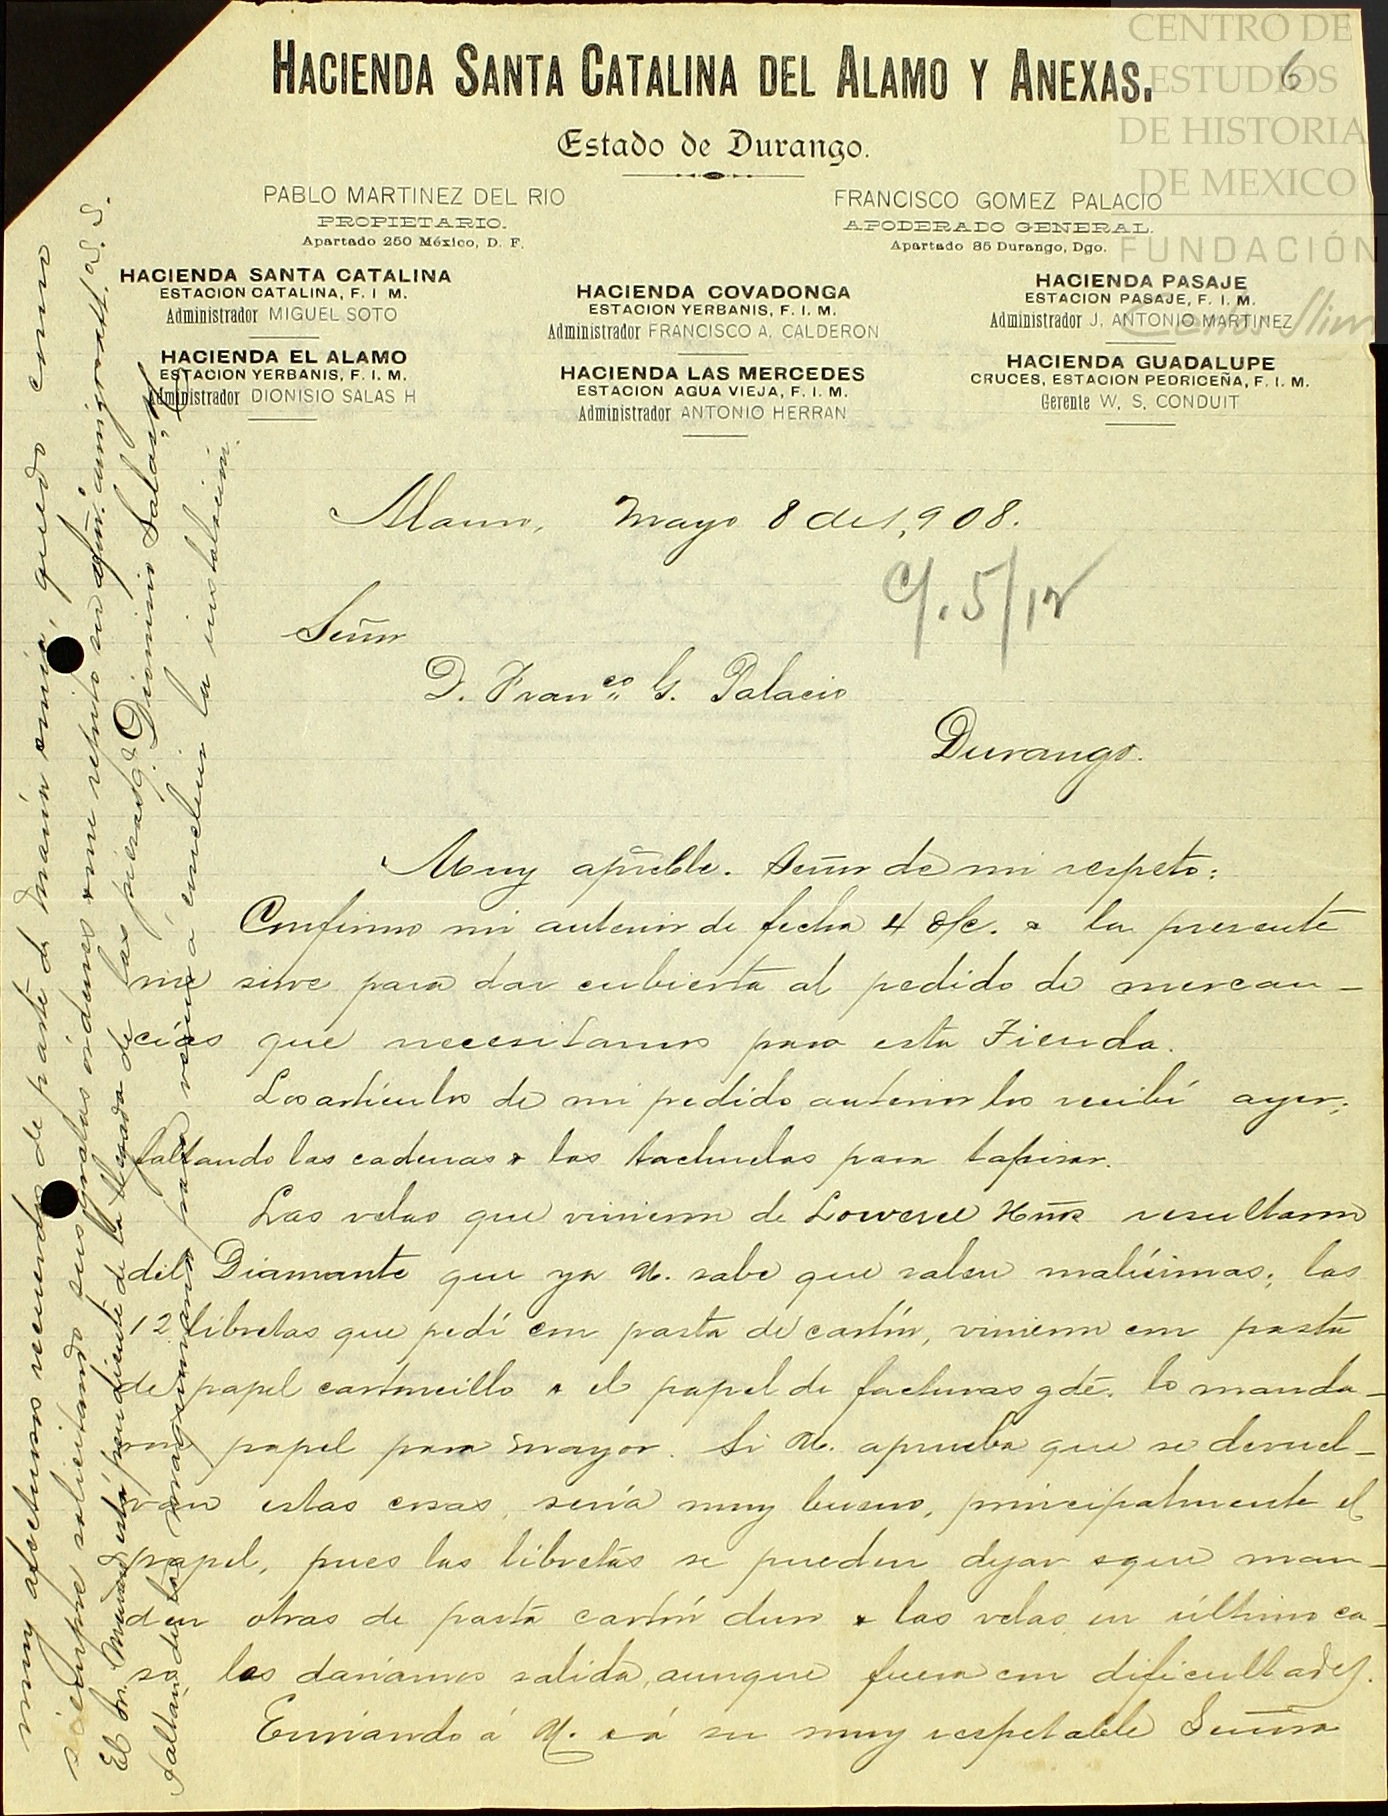 CENTRO DE
ESTUDIOS
DE HISTORIA
DE MEXICO
FUNDACIÓN
Carlos Slim
6
HACIENDA SANTA CATALINA DEL ALAMO Y ANEXAS.
Estado de Durango.
PABLO MARTINEZ DEL RIO
PROPIETARIO.
Apartado 250 México, D. F.
FRANCISCO GOMEZ PALACIO
APODERADO GENERAL.
Apartado 85 Durango, Dgo.
HACIENDA SANTA CATALINA
ESTACION CATALINA, F. I M.
Administrador MIGUEL SOTO
HACIENDA COVADONGA
ESTACION YERBANIS, F. I. M.
Administrador FRANCISCO A. CALDERON
HACIENDA PASAJE
ESTACION PASAJE, F. I. M.
Administrador J. ANTONIO MARTINEZ
HACIENDA EL ALAMO
ESTACION YERBANIS, F. I. M.
Administrador DIONISIO SALAS H
HACIENDA LAS MERCEDES
ESTACION AGUA VIEJA, F. I. M.
Administrador ANTONIO HERRAN
HACIENDA GUADALUPE
CRUCES, ESTACION PEDRICEÑA, F. I. M.
Gerente W. S. CONDUIT
Alamo, Mayo 8 de 1,908.
C/. 5/12
Señor
D. Franco G. Palacio
Durango.
Muy apreble. Señor de mi respeto:
Confirmo mi anterior de fecha 4 d/c. & la presente
me sirve para dar cubierta al pedido de mercan-
cías que necesitamos para esta Tienda.
Los artículos de mi pedido anterior los recibí ayer;
faltando las cadenas & las tachuelas para tapizar.
Las velas que vinieron de Lowere Hños resultaron
del Diamante que ya U. sabe que salen malísimas; las
12 libretas que pedí con pasta de cartón, vinieron con pasta
de papel cartoncillo & el papel de facturas gde. lo manda-
ron papel para Mayor. Si U. aprueba que se devuel-
van estas cosas, sería muy bueno, principalmente el
papel, pues las libretas se pueden dejar & que man-
den otras de pasta cartón duro & las velas en último ca-
so les daríamos salida, aunque fuera con dificultades.
Enviando á U. & á su muy respetable Señora
muy afectuosos recuerdos de parte de Mamá & mía, quedo como
siempre solicitando sus gratas órdenes & me repito su afmo. amigo atto. & S. S.
Dionisio Salas H
El Sr. está pendiente de la llegada de las piezas q.
faltan de la maquinaria para venir á concluir la instalación.